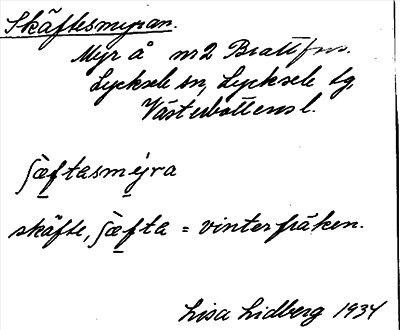 Skäftesmyran.
Myr å nr 2 Brattfors.
Lycksele sn, Lycksele lg,
Västerbottens l.
ʃæftasmýra
skäfte, ʃæfta = vinterfräken.
Lisa Lidberg 1934